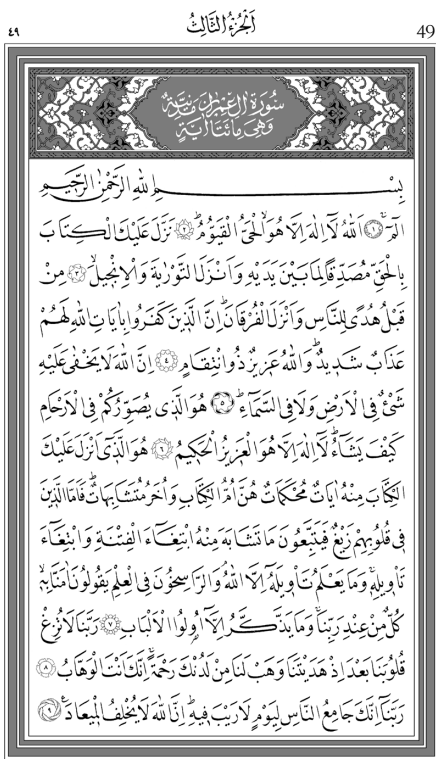 ٤٩ اَلْجُزْءُ الثَّالِثُ 49
سُورَةُ اٰلِ عِمْرٰانَ مَدَنِيَّةٌ
وَهِيَ مِائَتَا اٰيَةٍ
بِسْمِ اللّٰهِ الرَّحْمٰنِ الرَّحٖيمِ
الٓمٓ ﴿١﴾ اَللّٰهُ لَٓا اِلٰهَ اِلَّا هُوَ الْحَيُّ الْقَيُّومُ ﴿٢﴾ نَزَّلَ عَلَيْكَ الْكِتَابَ
بِالْحَقِّ مُصَدِّقًا لِمَا بَيْنَ يَدَيْهِ وَاَنْزَلَ التَّوْرٰيةَ وَالْاِنْجٖيلَ ﴿٣﴾ مِنْ
قَبْلُ هُدًى لِلنَّاسِ وَاَنْزَلَ الْفُرْقَانَ اِنَّ الَّذٖينَ كَفَرُوا بِاٰيَاتِ اللّٰهِ لَهُمْ
عَذَابٌ شَدٖيدٌ وَاللّٰهُ عَزٖيزٌ ذُو انْتِقَامٍ ﴿٤﴾ اِنَّ اللّٰهَ لَا يَخْفٰى عَلَيْهِ
شَيْءٌ فِي الْاَرْضِ وَلَا فِي السَّمَٓاءِ ﴿٥﴾ هُوَ الَّذٖي يُصَوِّرُكُمْ فِي الْاَرْحَامِ
كَيْفَ يَشَٓاءُ لَٓا اِلٰهَ اِلَّا هُوَ الْعَزٖيزُ الْحَكٖيمُ ﴿٦﴾ هُوَ الَّذٖٓي اَنْزَلَ عَلَيْكَ
الْكِتَابَ مِنْهُ اٰيَاتٌ مُحْكَمَاتٌ هُنَّ اُمُّ الْكِتَابِ وَاُخَرُ مُتَشَابِهَاتٌ فَاَمَّا الَّذٖينَ
فٖي قُلُوبِهِمْ زَيْغٌ فَيَتَّبِعُونَ مَا تَشَابَهَ مِنْهُ ابْتِغَٓاءَ الْفِتْنَةِ وَابْتِغَٓاءَ
تَأْوٖيلِهٖ وَمَا يَعْلَمُ تَأْوٖيلَهُٓ اِلَّا اللّٰهُ وَالرَّاسِخُونَ فِي الْعِلْمِ يَقُولُونَ اٰمَنَّا بِهٖ
كُلٌّ مِنْ عِنْدِ رَبِّنَا وَمَا يَذَّكَّرُ اِلَّٓا اُولُوا الْاَلْبَابِ ﴿٧﴾ رَبَّنَا لَا تُزِغْ
قُلُوبَنَا بَعْدَ اِذْ هَدَيْتَنَا وَهَبْ لَنَا مِنْ لَدُنْكَ رَحْمَةً اِنَّكَ اَنْتَ الْوَهَّابُ ﴿٨﴾
رَبَّنَٓا اِنَّكَ جَامِعُ النَّاسِ لِيَوْمٍ لَا رَيْبَ فٖيهِ اِنَّ اللّٰهَ لَا يُخْلِفُ الْمٖيعَادَ ﴿٩﴾